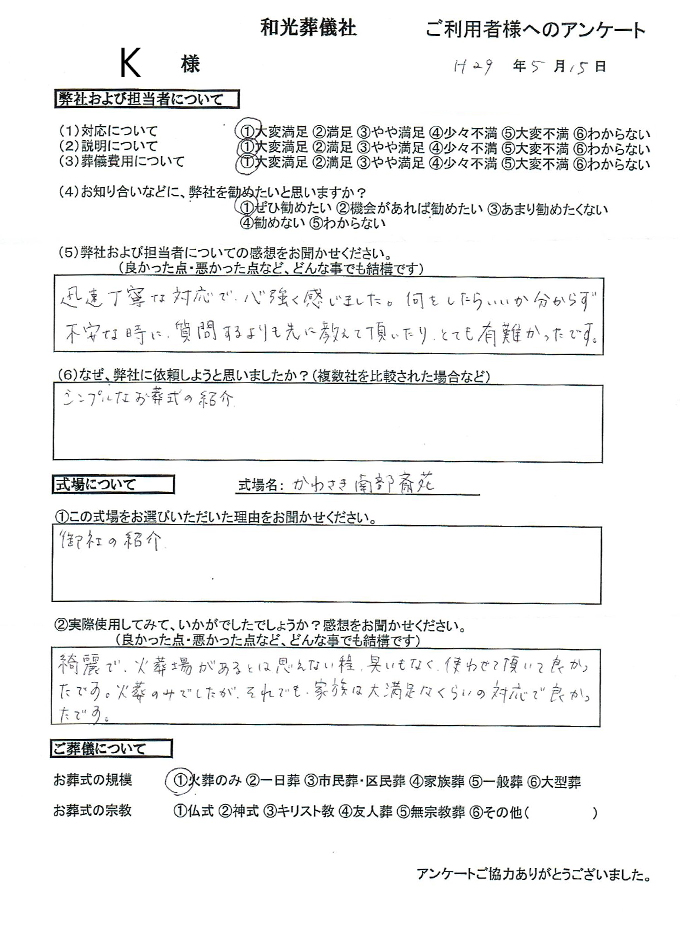 和光葬儀社 ご利用者様へのアンケート
K 様 H29 年 5 月 15 日
弊社および担当者について
(1)対応について ①大変満足 ②満足 ③やや満足 ④少々不満 ⑤大変不満 ⑥わからない
(2)説明について ①大変満足 ②満足 ③やや満足 ④少々不満 ⑤大変不満 ⑥わからない
(3)葬儀費用について ①大変満足 ②満足 ③やや満足 ④少々不満 ⑤大変不満 ⑥わからない
(4)お知り合いなどに、弊社を勧めたいと思いますか?
①ぜひ勧めたい ②機会があれば勧めたい ③あまり勧めたくない
④勧めない ⑤わからない
(5)弊社および担当者についての感想をお聞かせください。
(良かった点・悪かった点など、どんな事でも結構です)
迅速丁寧な対応で、心強く感じました。何をしたらいいか分からず
不安な時に、質問するよりも先に教えて頂いたり、とても有難かったです。
(6)なぜ、弊社に依頼しようと思いましたか?(複数社を比較された場合など)
シンプルなお葬式の紹介
式場について 式場名: かわさき南部斎苑
①この式場をお選びいただいた理由をお聞かせください。
御社の紹介
②実際使用してみて、いかがでしたでしょうか?感想をお聞かせください。
(良かった点・悪かった点など、どんな事でも結構です)
綺麗で、火葬場があるとは思えない程、臭いもなく、使わせて頂いて良かっ
たです。火葬のみでしたが、それでも、家族は大満足なくらいの対応で良かっ
たです。
ご葬儀について
お葬式の規模 ①火葬のみ ②一日葬 ③市民葬・区民葬 ④家族葬 ⑤一般葬 ⑥大型葬
お葬式の宗教 ①仏式 ②神式 ③キリスト教 ④友人葬 ⑤無宗教葬 ⑥その他( )
アンケートご協力ありがとうございました。